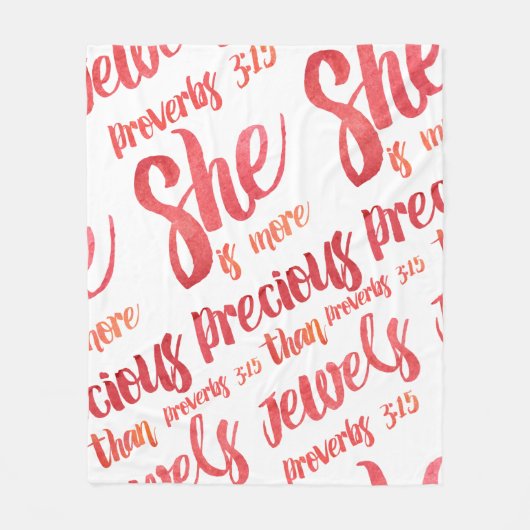 Jewe
proverbs 3:15
She
is more
She
is more
he
more
precious
preci
ecious
than
proverbs 3:15
than
proverbs 3:15
Jewels
wels
proverbs 3:15